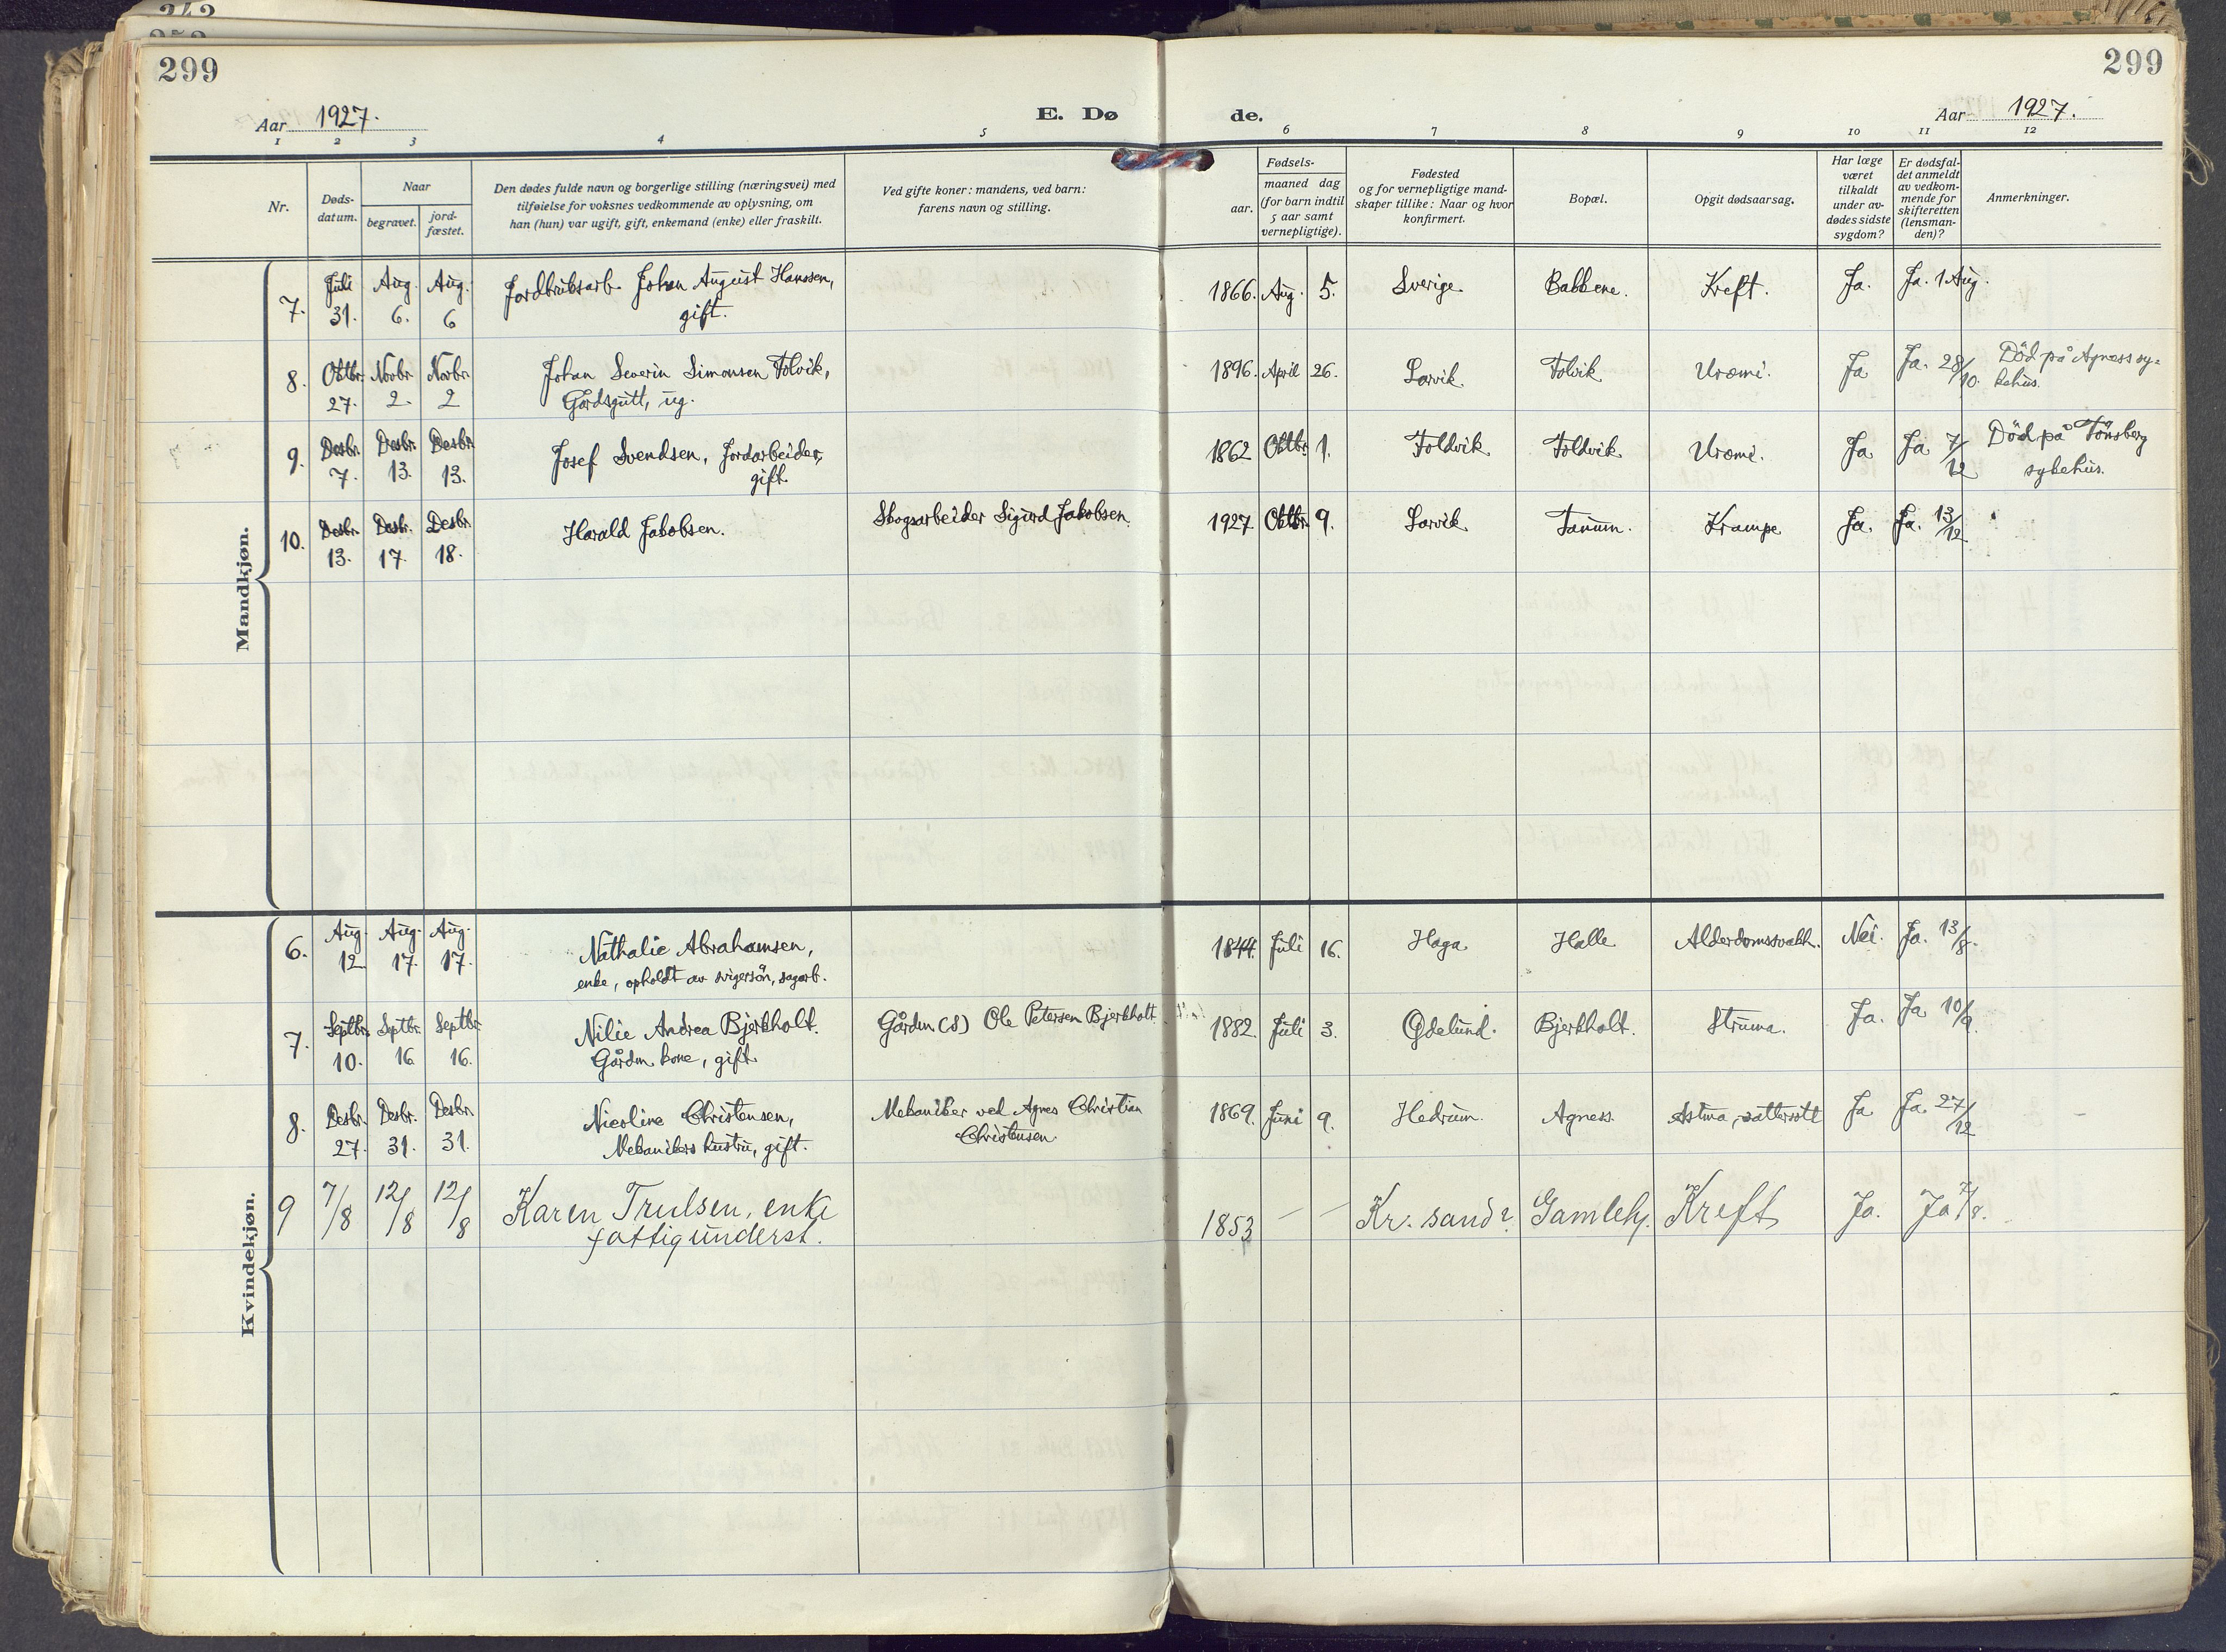 299
299
Aar 1927.
E. Dø
de.
Aar 1927.
1 2 3 4 5 6 7 8 9 10 11 12
Nr.
Døds-
datum.
Naar
begravet.
jord-
fæstet.
Den dødes fulde navn og borgerlige stilling (næringsvei) med
tilføielse for voksnes vedkommende av oplysning, om
han (hun) var ugift, gift, enkemand (enke) eller fraskilt.
Ved gifte koner: mandens, ved barn:
farens navn og stilling.
Fødsels-
aar.
maaned dag
(for barn indtil
5 aar samt
vernepligtige).
Fødested
og for vernepligtige mand-
skaper tillike: Naar og hvor
konfirmert.
Bopæl.
Opgit dødsaarsag.
Har læge
været
tilkaldt
under av-
dødes sidste
sygdom?
Er dødsfal-
det anmeldt
av vedkom-
mende for
skifteretten
(lensman-
den)?
Anmerkninger.
Mandkjøn.
7. Juli 31. Aug. 6. Aug. 6 Jordbruksarb. Johan August Hanssen,
gift.
1866. Aug. 5. Sverige. Bakkene. Kreft. Ja. Ja. 1 Aug.
8. Oktbr. 27. Novbr. 2. Novbr. 2 Johan Severin Simonsen Folvik,
Gårdsgutt, ug.
1896. April 26. Larvik. Folvik Uræmi. Ja Ja. 28/10. Död på Agness sy-
kehus.
9. Desbr. 7. Desbr. 13. Desbr. 13. Josef Svendsen, Jordarbeider,
gift.
1862 Oktbr. 1. Foldvik Foldvik Uræmi. Ja Ja 7/12 Död på Tönsberg
sykehus.
10. Desbr. 13. Desbr. 17. Desbr. 18. Harald Jakobsen. Skogsarbeider Sigurd Jakobsen.
1927. Oktbr. 9. Larvik Tanum. Krampe Ja. Ja. 13/12
Kvindekjøn.
6. Aug. 12. Aug. 17. Aug. 17. Nathalie Abrahamsen,
enke, opholdt av svigersön, sagarb.
1844. Juli 16. Haga Halle Alderdomssvakh. Nei. Ja. 13/8.
7. Septbr. 10. Septbr. 16 Septbr. 16. Nilie Andrea Bjerkholt. Gårdm (s) Ole Petersen Bjerkholt
Gårdm. kone, gift.
1882. Juli 3. Ødelund. Bjerkholt. Struma. Ja. Ja 10/9.
8. Desbr. 27. Desbr. 31. Desbr. 31. Nicoline Christensen, Mekaniker ved Agnes Christian
Mekanikers hustru, gift. Christensen.
1869. Juni 9. Hedrum. Agness. Astma, vattersott Ja Ja. 27/12
9 7/8 12/8 12/8 Karen Trulsen, enke
fattigunderst.
1853 — — Kr. sand? Gamlehj. Kreft Ja. Ja 7/8.